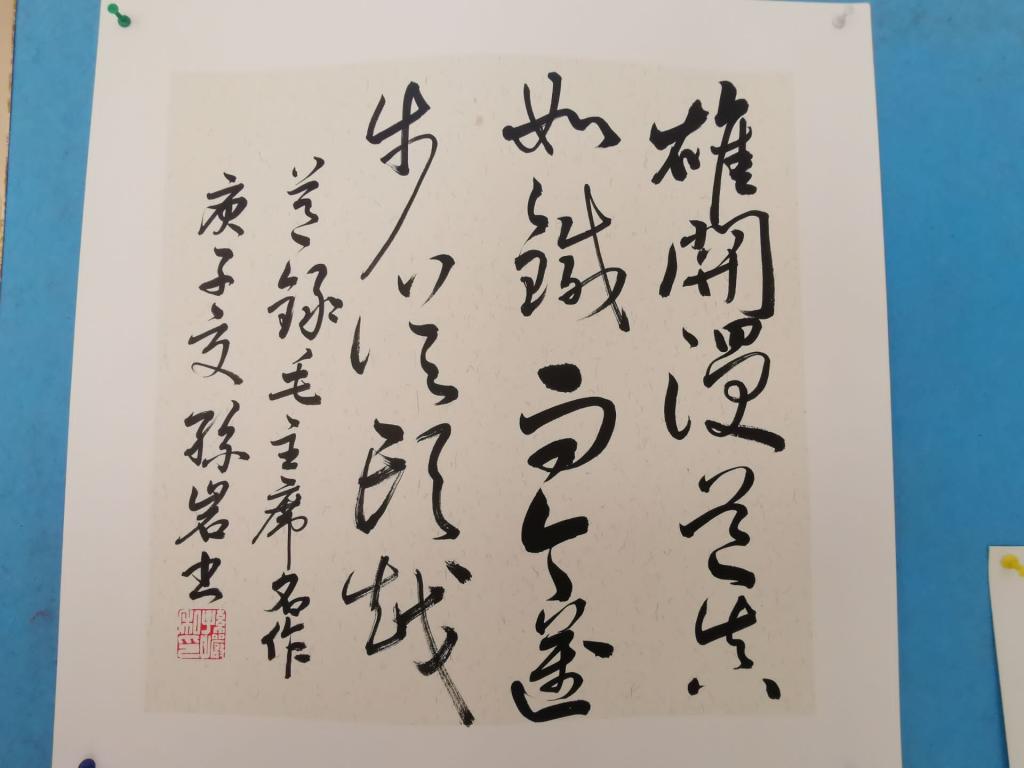 雄關漫道真
如鐵而今邁
步從頭越
錄毛主席名作
庚子夏孫岩书